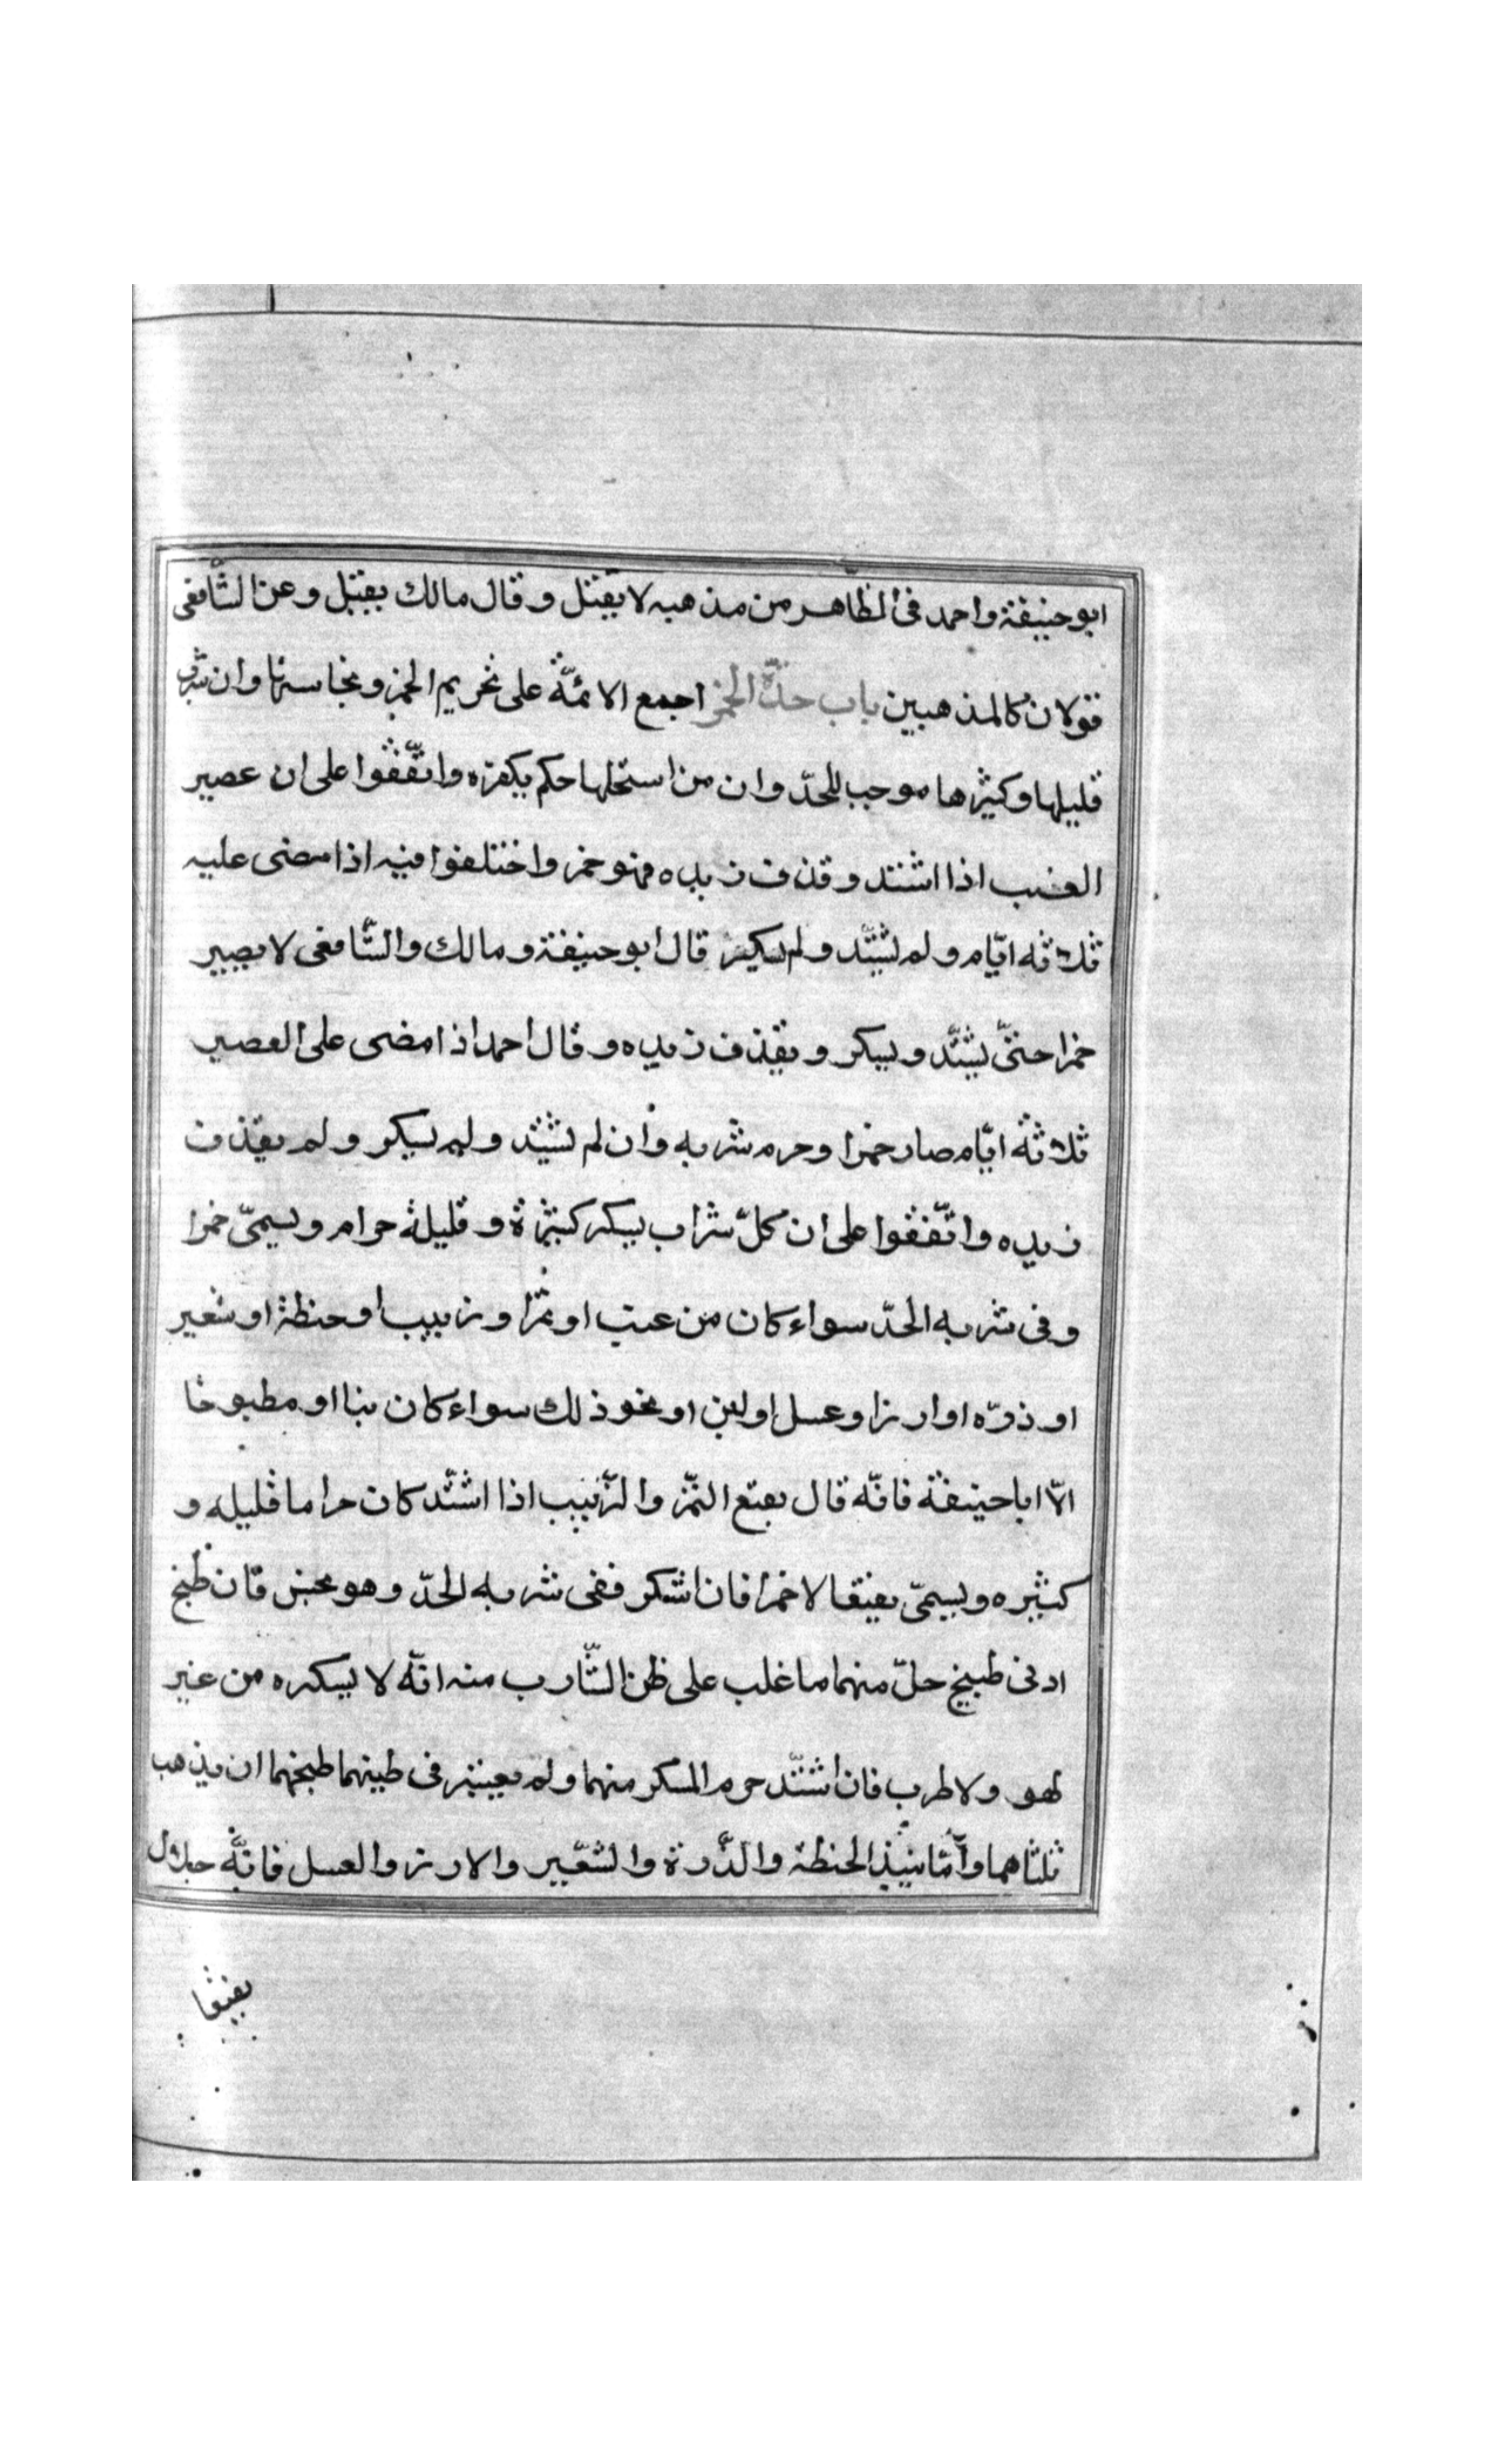 ابو حنيفة واحمد فى الظّاهر من مذهبه لا يقتل وقال مالك يقتل وعن الشّافعى
قولان كالمذهبين باب حدّ الخمر اجمع الائمّة على تحريم الخمر ونجاستها وان شرب
قليلها وكثيرها موجب للحدّ وان من استحلها حكم بكفره واتّفقوا على ان عصير
العنب اذا اشتد وقذف زبده فهو خمر واختلفوا فيه اذا مضى عليه
ثلاثه ايّام ولم يشتّد ولم يسكر قال ابو حنيفة ومالك والشّافعى لا يصير
خمرا حتىّ يشتّد ويسكر ويقذف زبده وقال احمد اذا مضى على العصير
ثلاثة ايّام صار خمرا وحرم شربه وان لم يشتد ولم يسكر ولم يقذف
زبده واتّفقوا على ان كلّ شراب يسكر كثيرة وقليلة حرام ويسمىّ خمرا
وفى شربه الحدّ سواء كان من عنب او تمر او زبيب او حنطة او شعير
او ذرّه او ارز او عسل او لبن او نحو ذلك سواء كان نيا او مطبوخا
الاّ ابا حنيفة فانّه قال نقيع التّمر والزّبيب اذا اشتّد كان حراما قليله و
كثيره ويسمىّ نقيقا لا خمرا فان اسكر ففى شربه الحدّ وهو نجس فان طبخ
ادنى طبيخ حلّ منهما ما غلب على ظن الشّارب منه انّه لا يسكره من غير
لهو ولا طرب فان اشتّد حرم المسكر منهما ولم يعتبر فى طبخهما ان يذهب
ثلثاهما وامّا نبيذ الحنطة والذّرة والشعّير والارز والعسل فانّه حلال
نقيقا